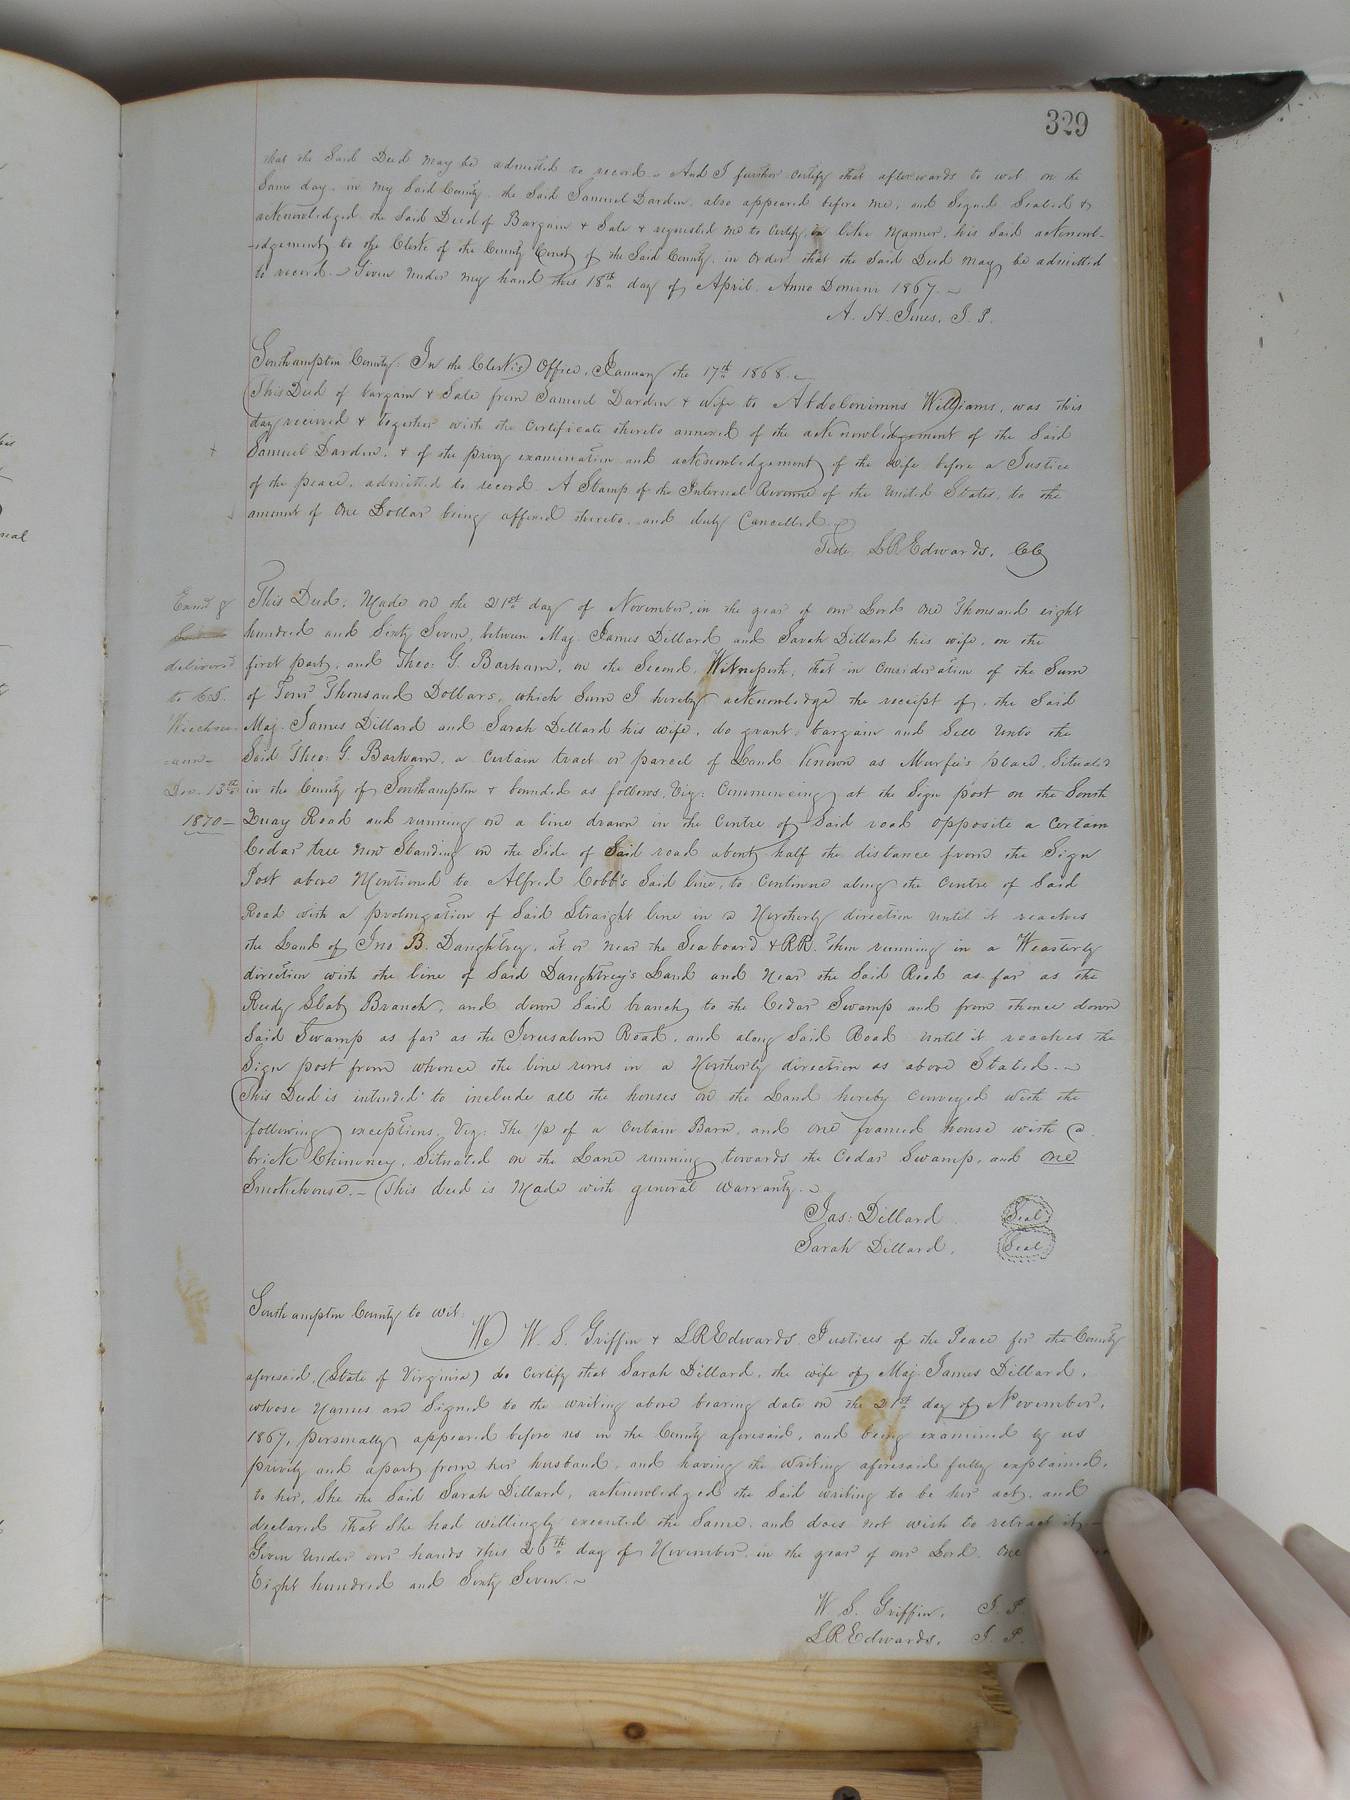 329
that the Said Deed may be admitted to record. And I further certify that afterwards to wit on the
Same day in my Said County the Said Samuel Darden also appeared before me, and Signed Sealed &
acknowledged the Said Deed of Bargain & Sale & requested me to Certify in like Manner, his Said acknowl-
-edgement to the Clerk of the County Court of the Said County in order that the Said Deed may be admitted
to record. Given under my hand this 18th day of April Anno Domini 1867.
J. P.
Southampton County: In the Clerk's Office, January the 17th 1868.
This Deed of bargain & Sale from Samuel Darden & Wife to Abdolonimns Williams, was this
day received & together with the Certificate thereto annexed of the acknowledgement of the Said
Samuel Darden, & of the privy examination and acknowledgement of the wife before a Justice
of the peace, admitted to record A Stamp of the Internal Revenue of the United States, to the
amount of One Dollar being affixed thereto, and duly Cancelled.
Teste L R Edwards, CC
This Deed, Made on the 21st day of November, in the year of our Lord One Thousand eight
hundred and Sixty Seven, between Maj. James Dillard and Sarah Dillard his wife, on the
first part, and Theo: G. Barham, on the Second, Witnesseth, that in Consideration of the Sum
of Four Thousand Dollars, which Sum I hereby acknowledge the receipt of, the Said
Maj. James Dillard and Sarah Dillard his wife, do grant bargain and Sell Unto the
Said Theo: G. Barham, a Certain tract or parcel of Land Known as Murfee's place, Situated
in the County of Southampton & bounded as follows, Viz: Commencing at the Sign post on the South
Quay Road and running on a line drawn in the Centre of Said road opposite a Certain
Cedar tree now Standing on the Side of Said road about half the distance from the Sign
Post above Mentioned to Alfred Cobb's Said line, to Continue along the Centre of Said
Road with a prolongation of Said Straight line in a Northerly direction until it reaches
the Land of Jno B. Daughtrey, at or near the Seaboard & RR. then running in a Weasterly
direction with the line of Said Daughtrey's Land and Near the Said Road as far as the
Reedy Slab Branch, and down Said branch to the Cedar Swamp and from thence down
Said Swamp as far as the Jerusalem Road, and along Said Road Until it reaches the
Sign post from whence the line runs in a Northerly direction as above Stated.
This Deed is intended to include all the houses on the Land hereby Conveyed with the
following exceptions, Viz: The 1/2 of a Certain Barn, and one framed house with a
brick Chimney, Situated on the Lane running towards the Cedar Swamp, and One
Smokehouse. This deed is Made with general Warranty.
Jas: Dillard Seal
Sarah Dillard, Seal
Exmd &
delivered
to
Dec. 13th
1870
Southampton County to wit:
We W. S. Griffin & L R Edwards Justices of the Peace for the County
aforesaid, (State of Virginia) do Certify that Sarah Dillard, the wife of Maj James Dillard,
whose Names are Signed to the writing above bearing date on the 21st day of November,
1867, personally appeared before us in the County aforesaid, and being examined by us
privily and apart from her husband, and having the writing aforesaid fully explained,
to her, She the Said Sarah Dillard, acknowledged the Said writing to be her act, and
declared that She had willingly executed the Same, and does not wish to retract it,
Given Under our hands this 26th day of November in the year of our Lord One
Eight hundred and Sixty Seven.
W. S. Griffin, J. P.
L R Edwards, J. P.